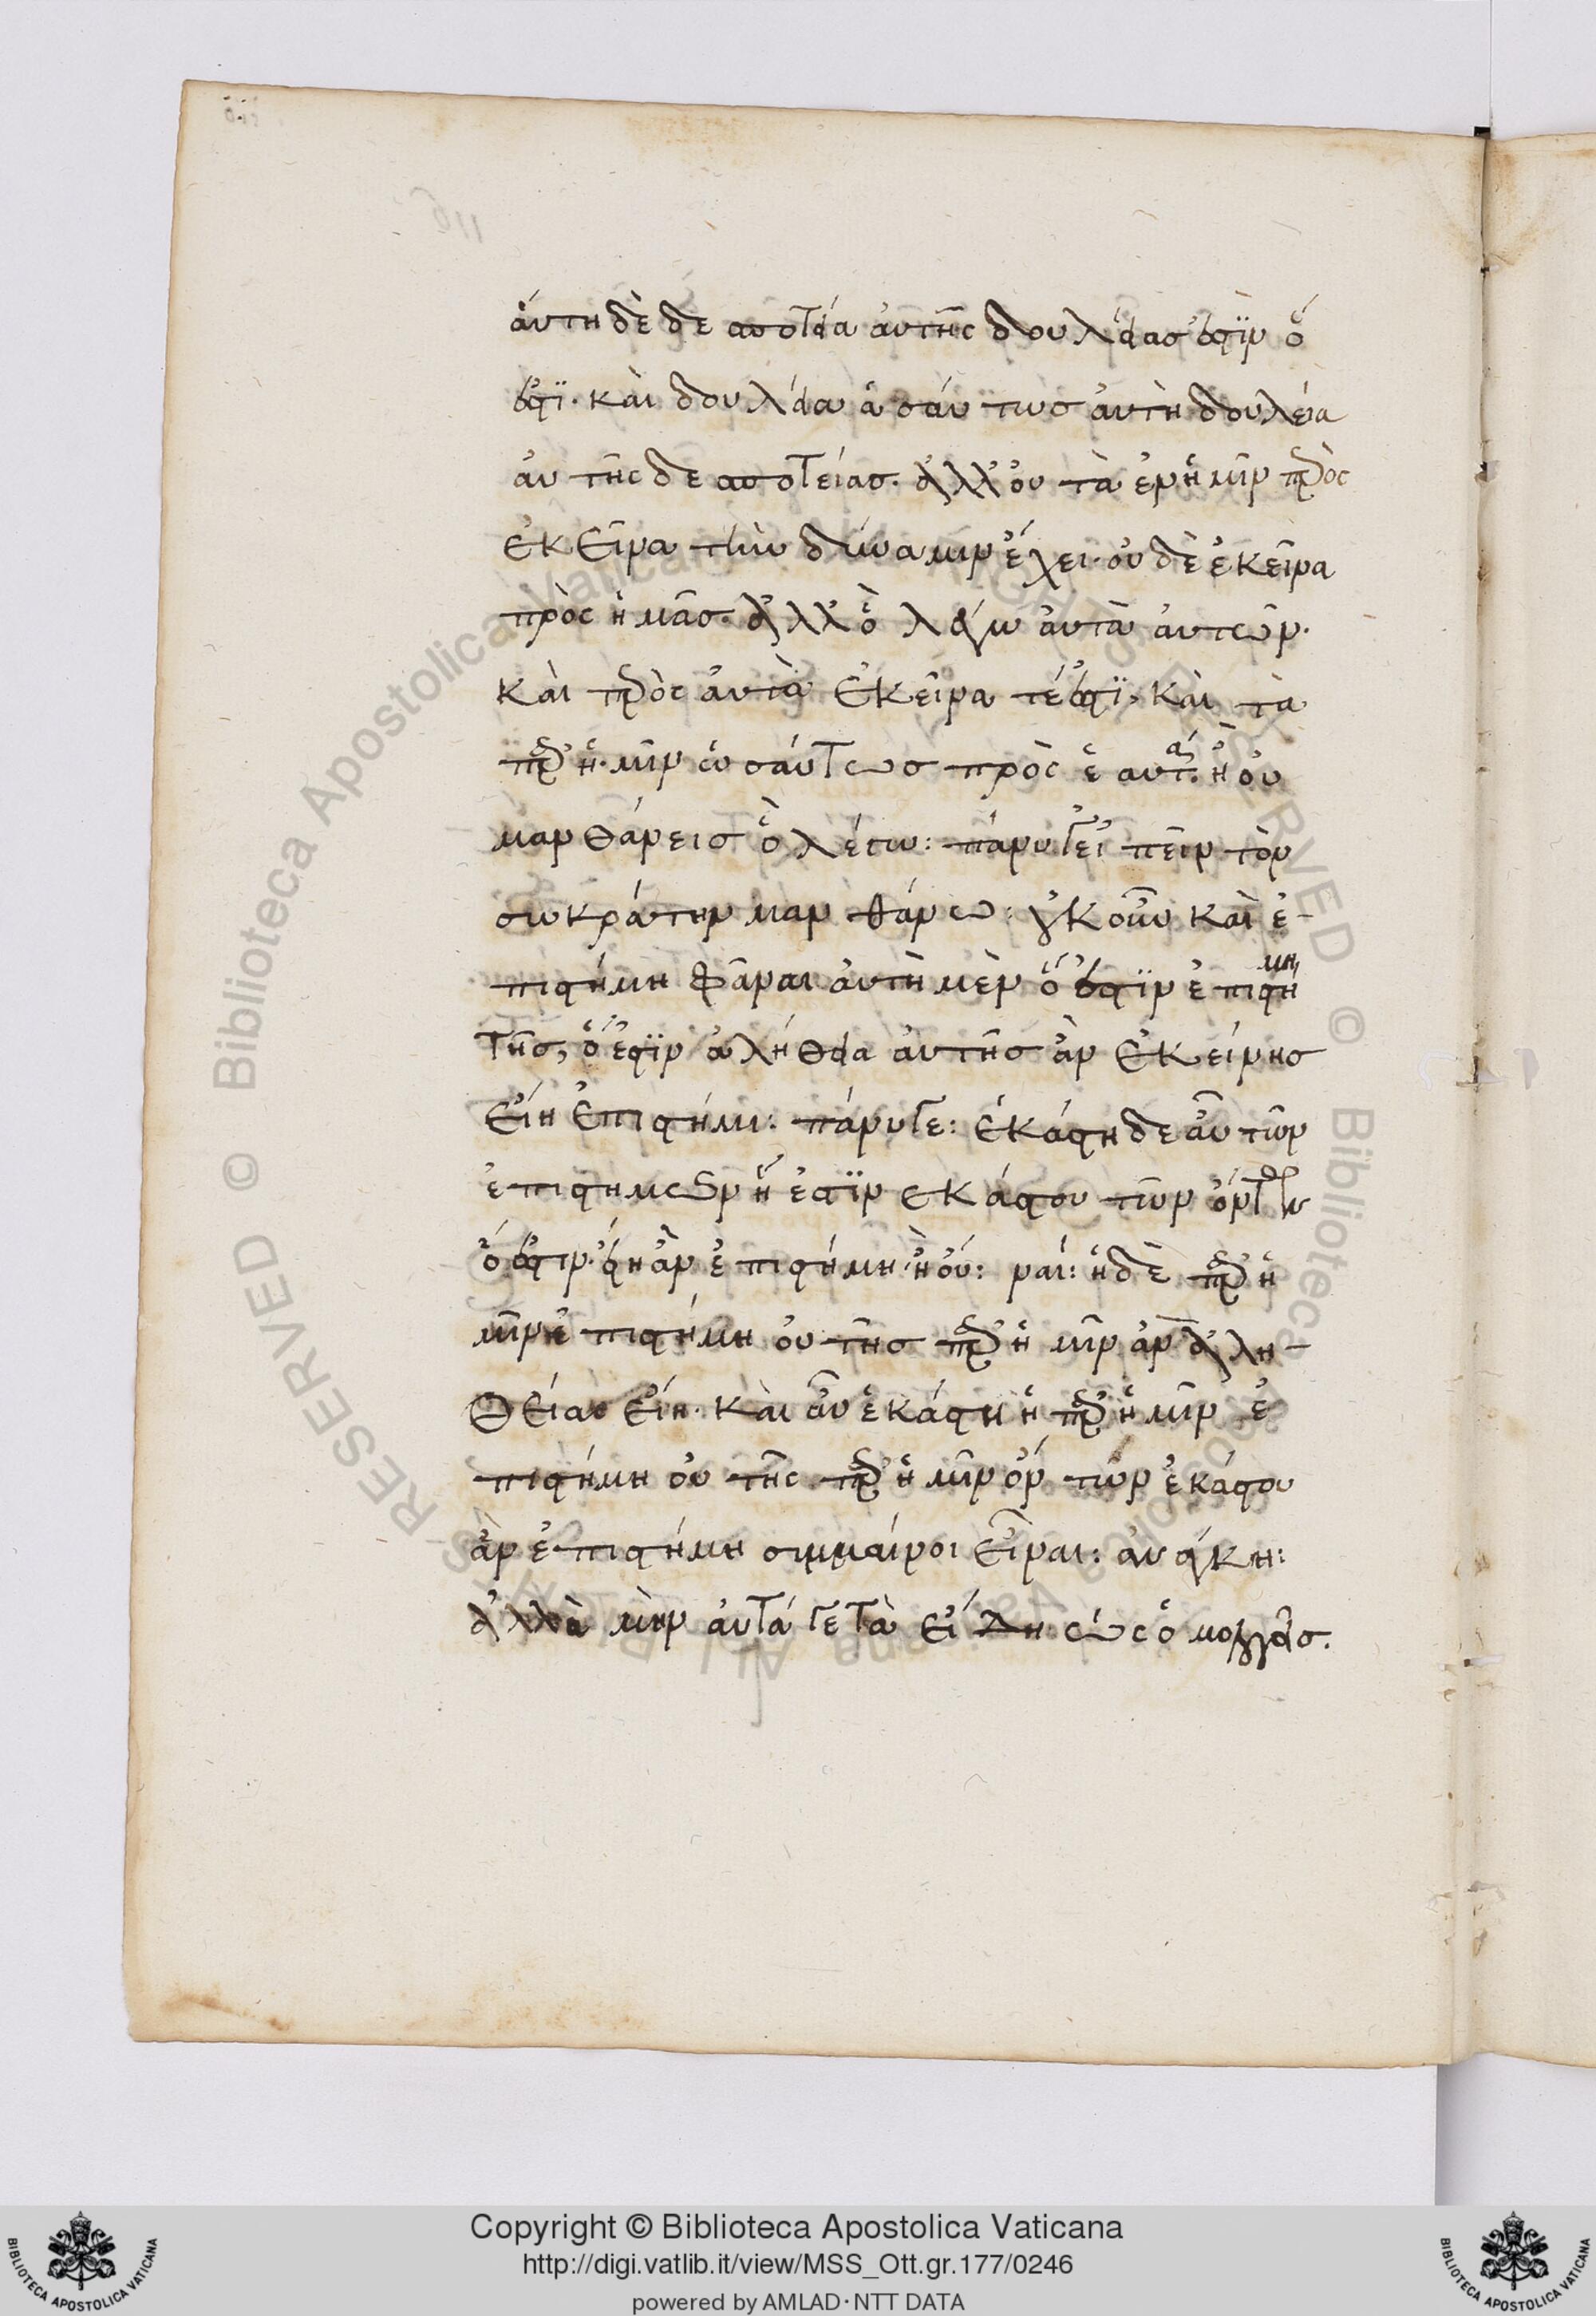 ἀύτη δὲ δεσποτεία ἀυτῆς δουλείασ ἐστὶν ὅ
ἐστι· καὶ δουλεία ὡσάυτωσ ἀυτὴ δουλεία
ἀυτῆς δεσποτείασ· ἀλλ' ὀυ τὰ ἐν ἡμῖν πρὸς
ἐκεῖνα τὴν δύναμιν ἔχει· ὀυδὲ ἐκεῖνα
πρὸς ἡμᾶσ· ἀλλ' ὃ λέγω ἀυτὰ ἁυτῶν·
καὶ πρὸς ἁυτὰ ἐκεῖνά τέ ἐστι, καὶ τὰ
παρ' ἡμῖν ὡσάυτωσ πρὸς ἑαυτά· ἢ ὀυ
μανθάνεισ ὃ λέγω: πάνυ γ' εἰπεῖν τὸν
σωκράτην μανθάνω: ὀυκοῦν καὶ ἐ-
πιστήμη φάναι ἀυτὴ μὲν ὅ ἐστὶν ἐπιστήμη
τῆσ, ὅ ἔστιν ἀλήθεια ἀυτῆσ ἂν ἐκείνησ
ἔιη ἐπιστήμη: πάνυγε: ἑκάστη δὲ ἀῦ τῶν
ἐπιστημῶν ἥ ἐστὶν ἑκάστου τῶν ὄντων
ὅ ἐστιν· ἔιη ἂν ἐπιστήμη· ἢ ὀύ: ναί: ἡ δὲ παρ' ἡ
μῖν ἐπιστήμη ὀυ τῆσ παρ' ἡμῖν ἂν ἀλη-
θείασ ἔιη· καὶ ἀῦ ἑκάστη ἡ παρ' ἡμῖν ἐ
πιστήμη ὀυ τῆς παρ' ἡμῖν ὄντων ἑκάστου
ἂν ἐπιστήμη συμβαίνοι εἶναι: ἀνάγκη:
ἀλλὰ μὴν ἀυτά γε τὰ ἔιδη ὡς ὁμολογεῖσ.
Copyright © Biblioteca Apostolica Vaticana
http://digi.vatlib.it/view/MSS_Ott.gr.177/0246
powered by AMLAD·NTT DATA